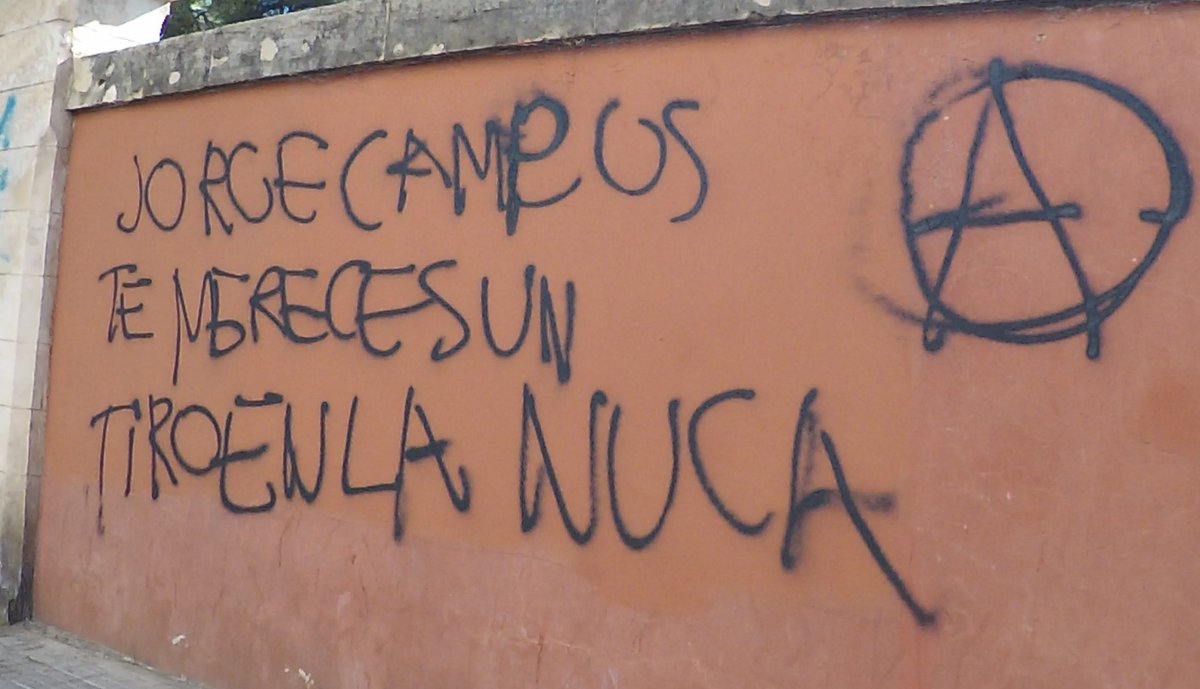 JORGE CAMPOS
TE MERECES UN
TIRO EN LA NUCA